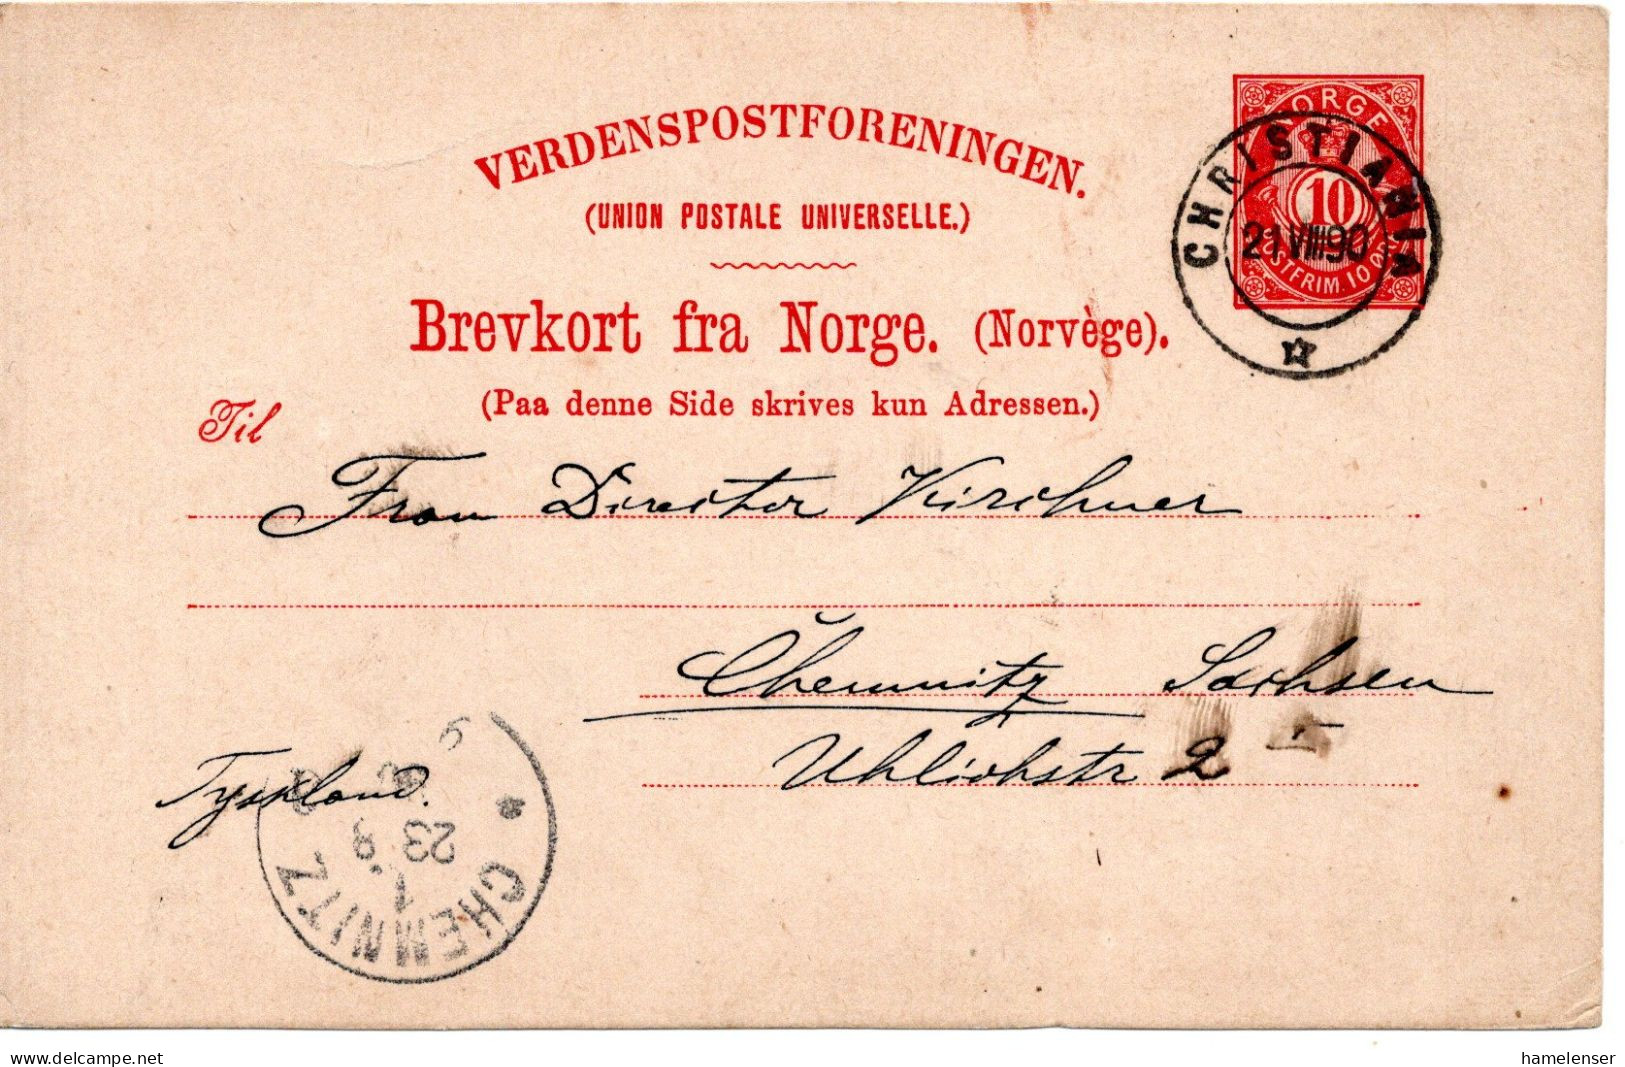 VERDENSPOSTFORENINGEN.
(UNION POSTALE UNIVERSELLE.)
Brevkort fra Norge. (Norvège).
(Paa denne Side skrives kun Adressen.)
NORGE
10
POSTFRIM. 10 ØRE
CHRISTIANIA
21 VIII 90
Til
Frau Director Kirchner
Chemnitz Sachsen
Uhlichstr 2
Tyskland.
CHEMNITZ
1
23 8
hamelenser